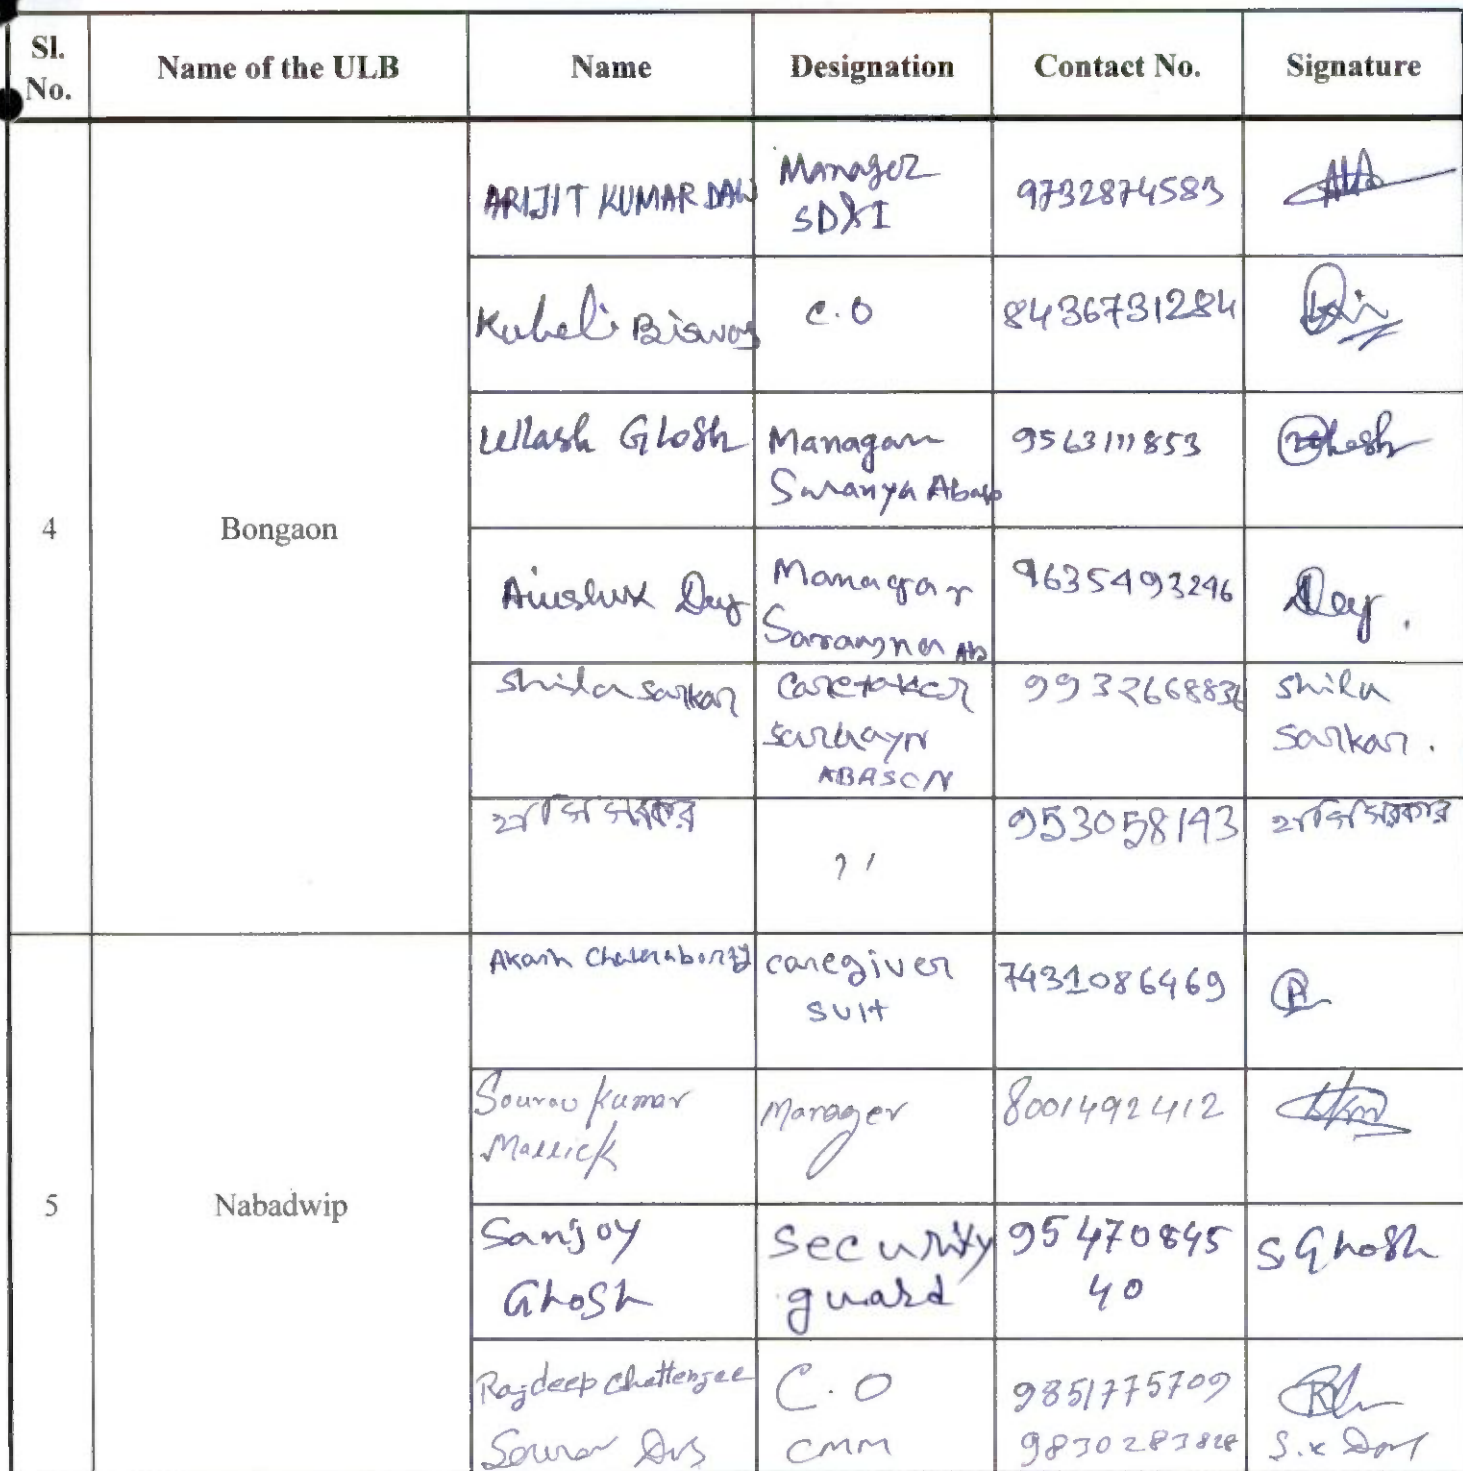 Sl. No. Name of the ULB Name Designation Contact No. Signature
4 Bongaon
ARIJIT KUMAR DAW Manager SD&I 9732874583
Kuheli Biswas C.O 8436731284
Ullash Ghosh Managar Saranya Abas 9563111853 Ghosh
Dey Managar Ab 9635493246 Dey.
Shila Sarkar Caretaker ABASON 993266883 Shila Sarkar.
হাসি সরকার '' 953058193 হাসি সরকার
5 Nabadwip
Akash Chakraborty caregiver SUH 7431086469
Sourav Kumar Mallick Manager 8001492412
Sanjoy Ghosh Security guard 95470845 40 S. Ghosh
Rajdeep Chatterjee C.O 9851775709
Sourav Das CMM 9830283828